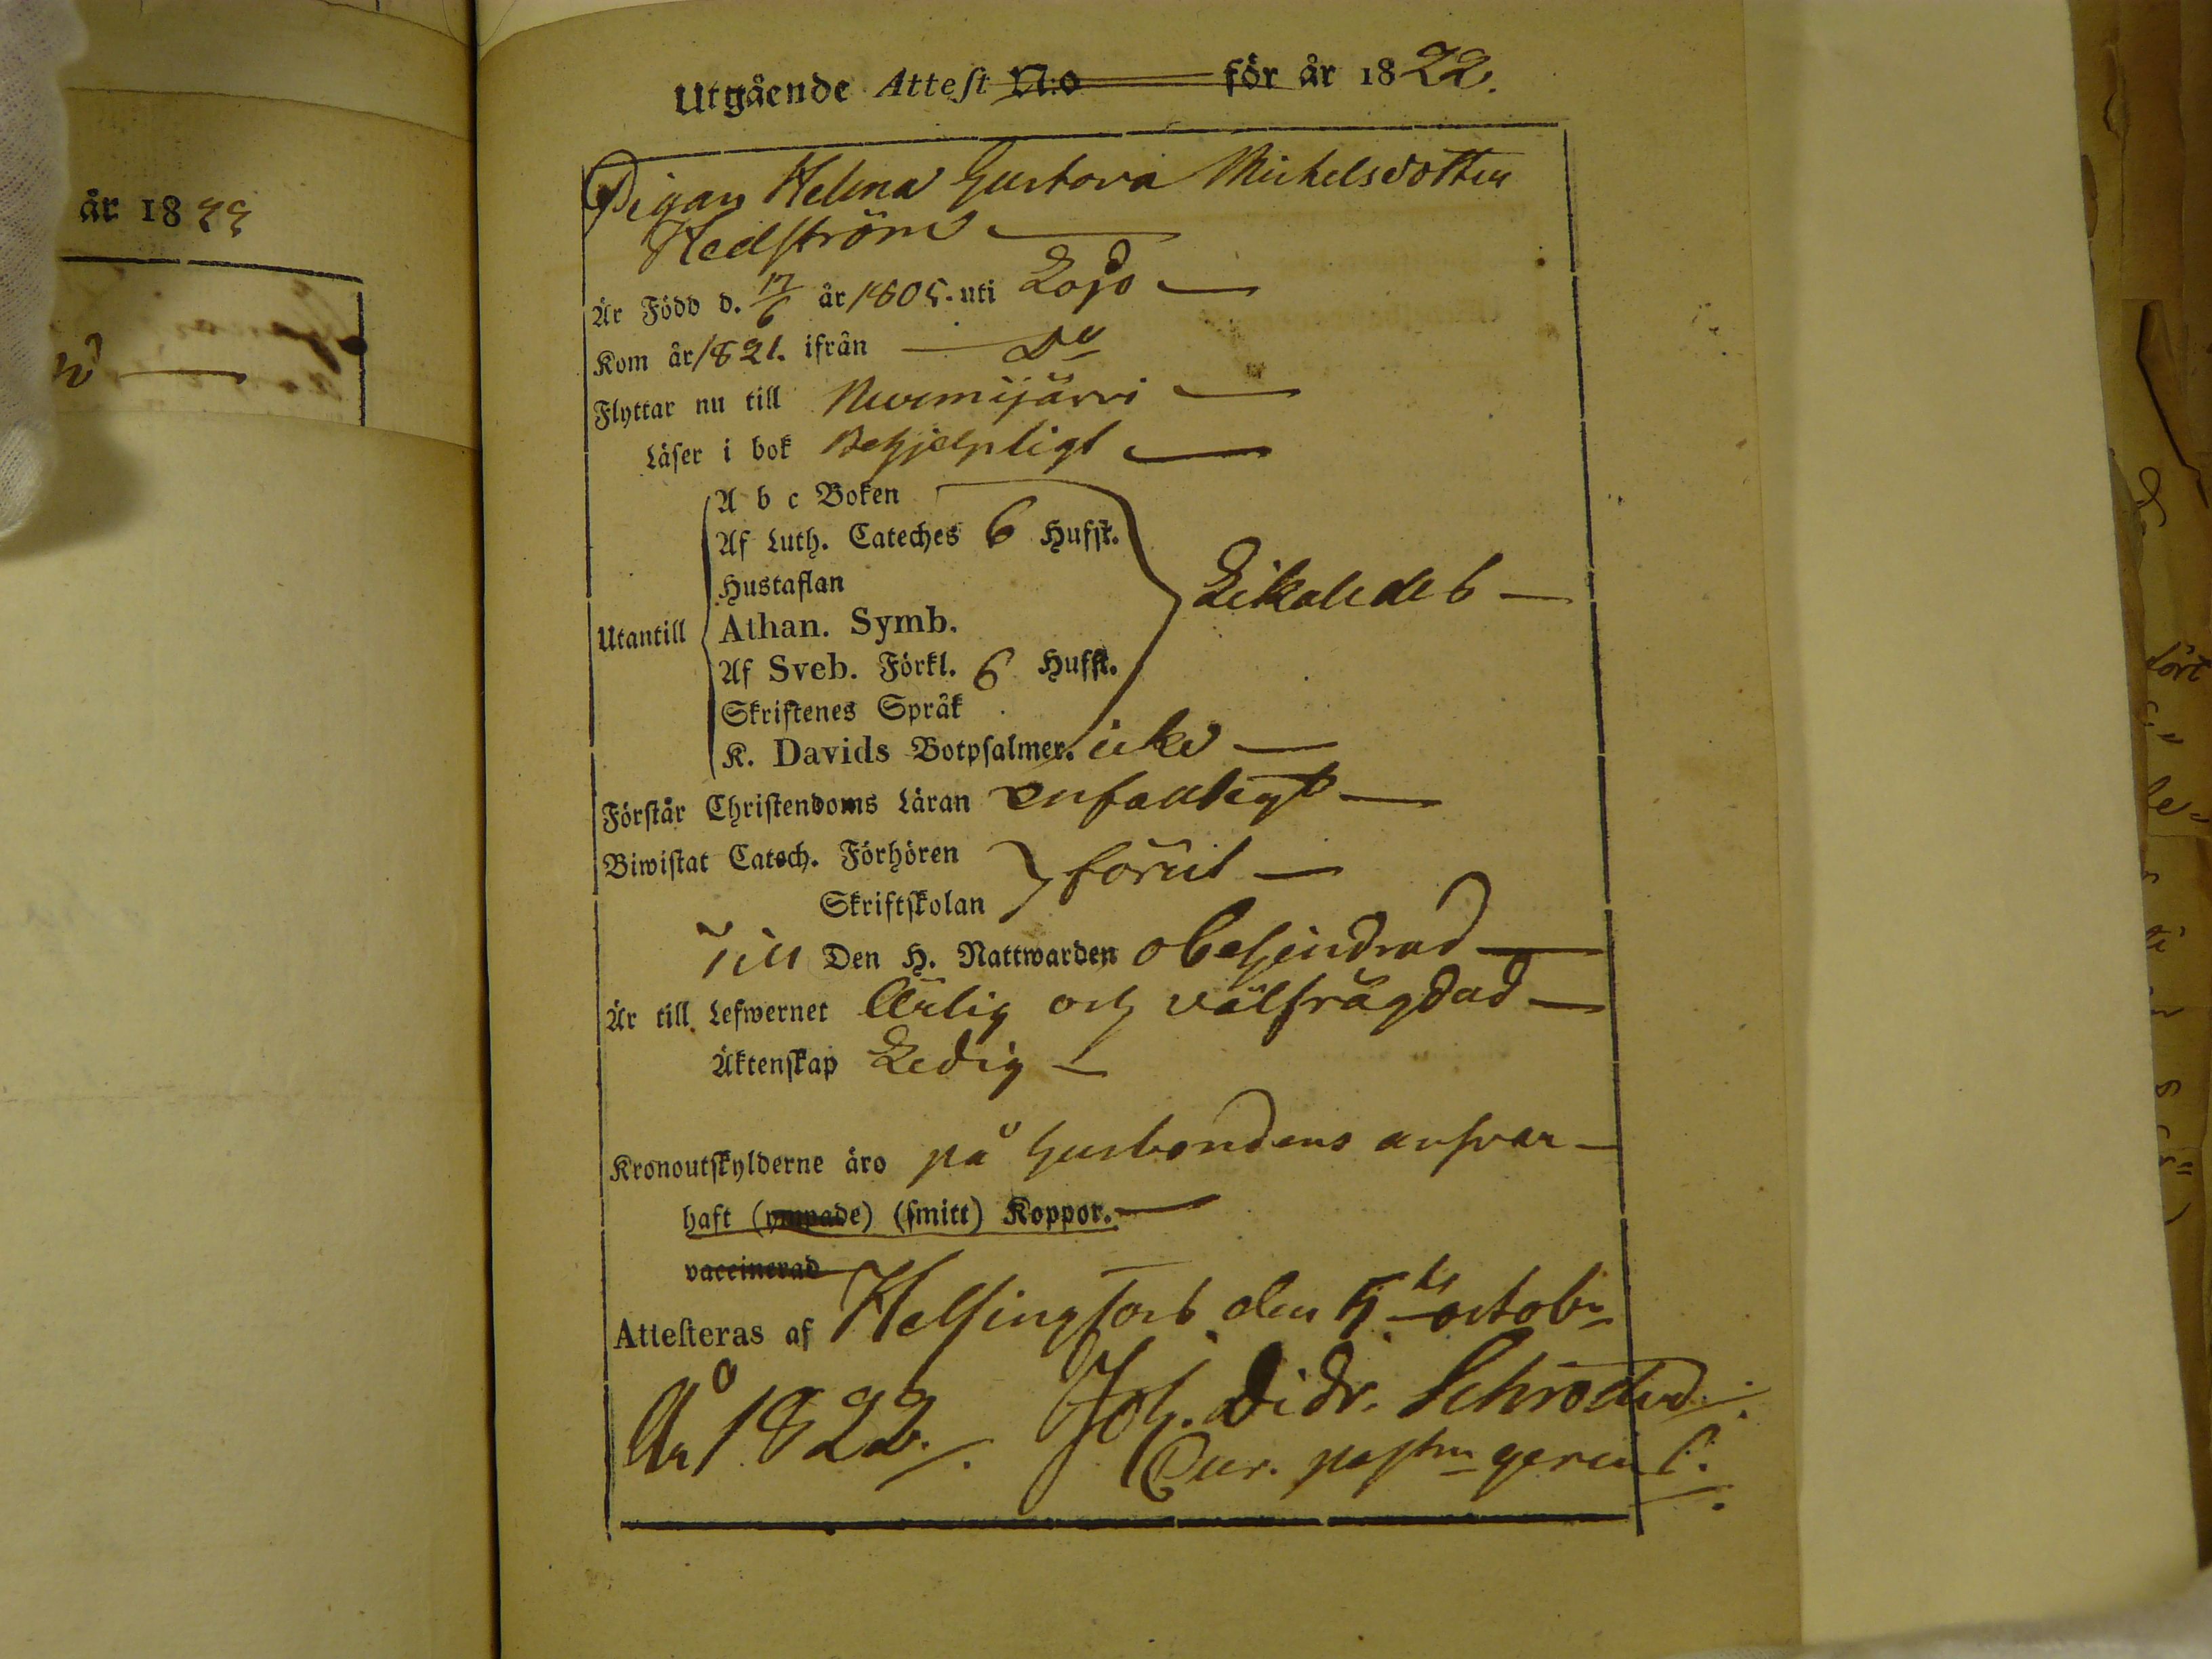 år 1822
Utgående Attest N:o för år 1822.
Pigan Helena Gustava Michelsdotter
Hedström
Är Född d. 17/6 år 1805. uti Lojo
Kom år 1821. ifrån Do
Flyttar nu till Nurmijärvi
Läser i bok Behjelpligt
A b c Boken
Af Luth. Cateches 6 Hufst.
Hustaflan
Likaledes
Utantill
Athan. Symb.
Af Sveb. Förkl. 6 Hufst.
Skriftenes Språk
K. Davids Botpsalmer. icke
Förstår Christendoms Läran enfaldigt
Biwistat Catech. Förhören
förut
Skriftskolan
Till Den H. Nattwarden obehindrad
Är till Lefwernet Ärlig och välfrägdad
Äktenskap Ledig
Kronoutskylderne äro på husbondens ansvar
haft (ympade) (smitt) Koppor.
vaccinerad
Attesteras af Helsingfors den 5te octobr
År 1822. Joh. Didr. Schröder
Cur. past. gerens.